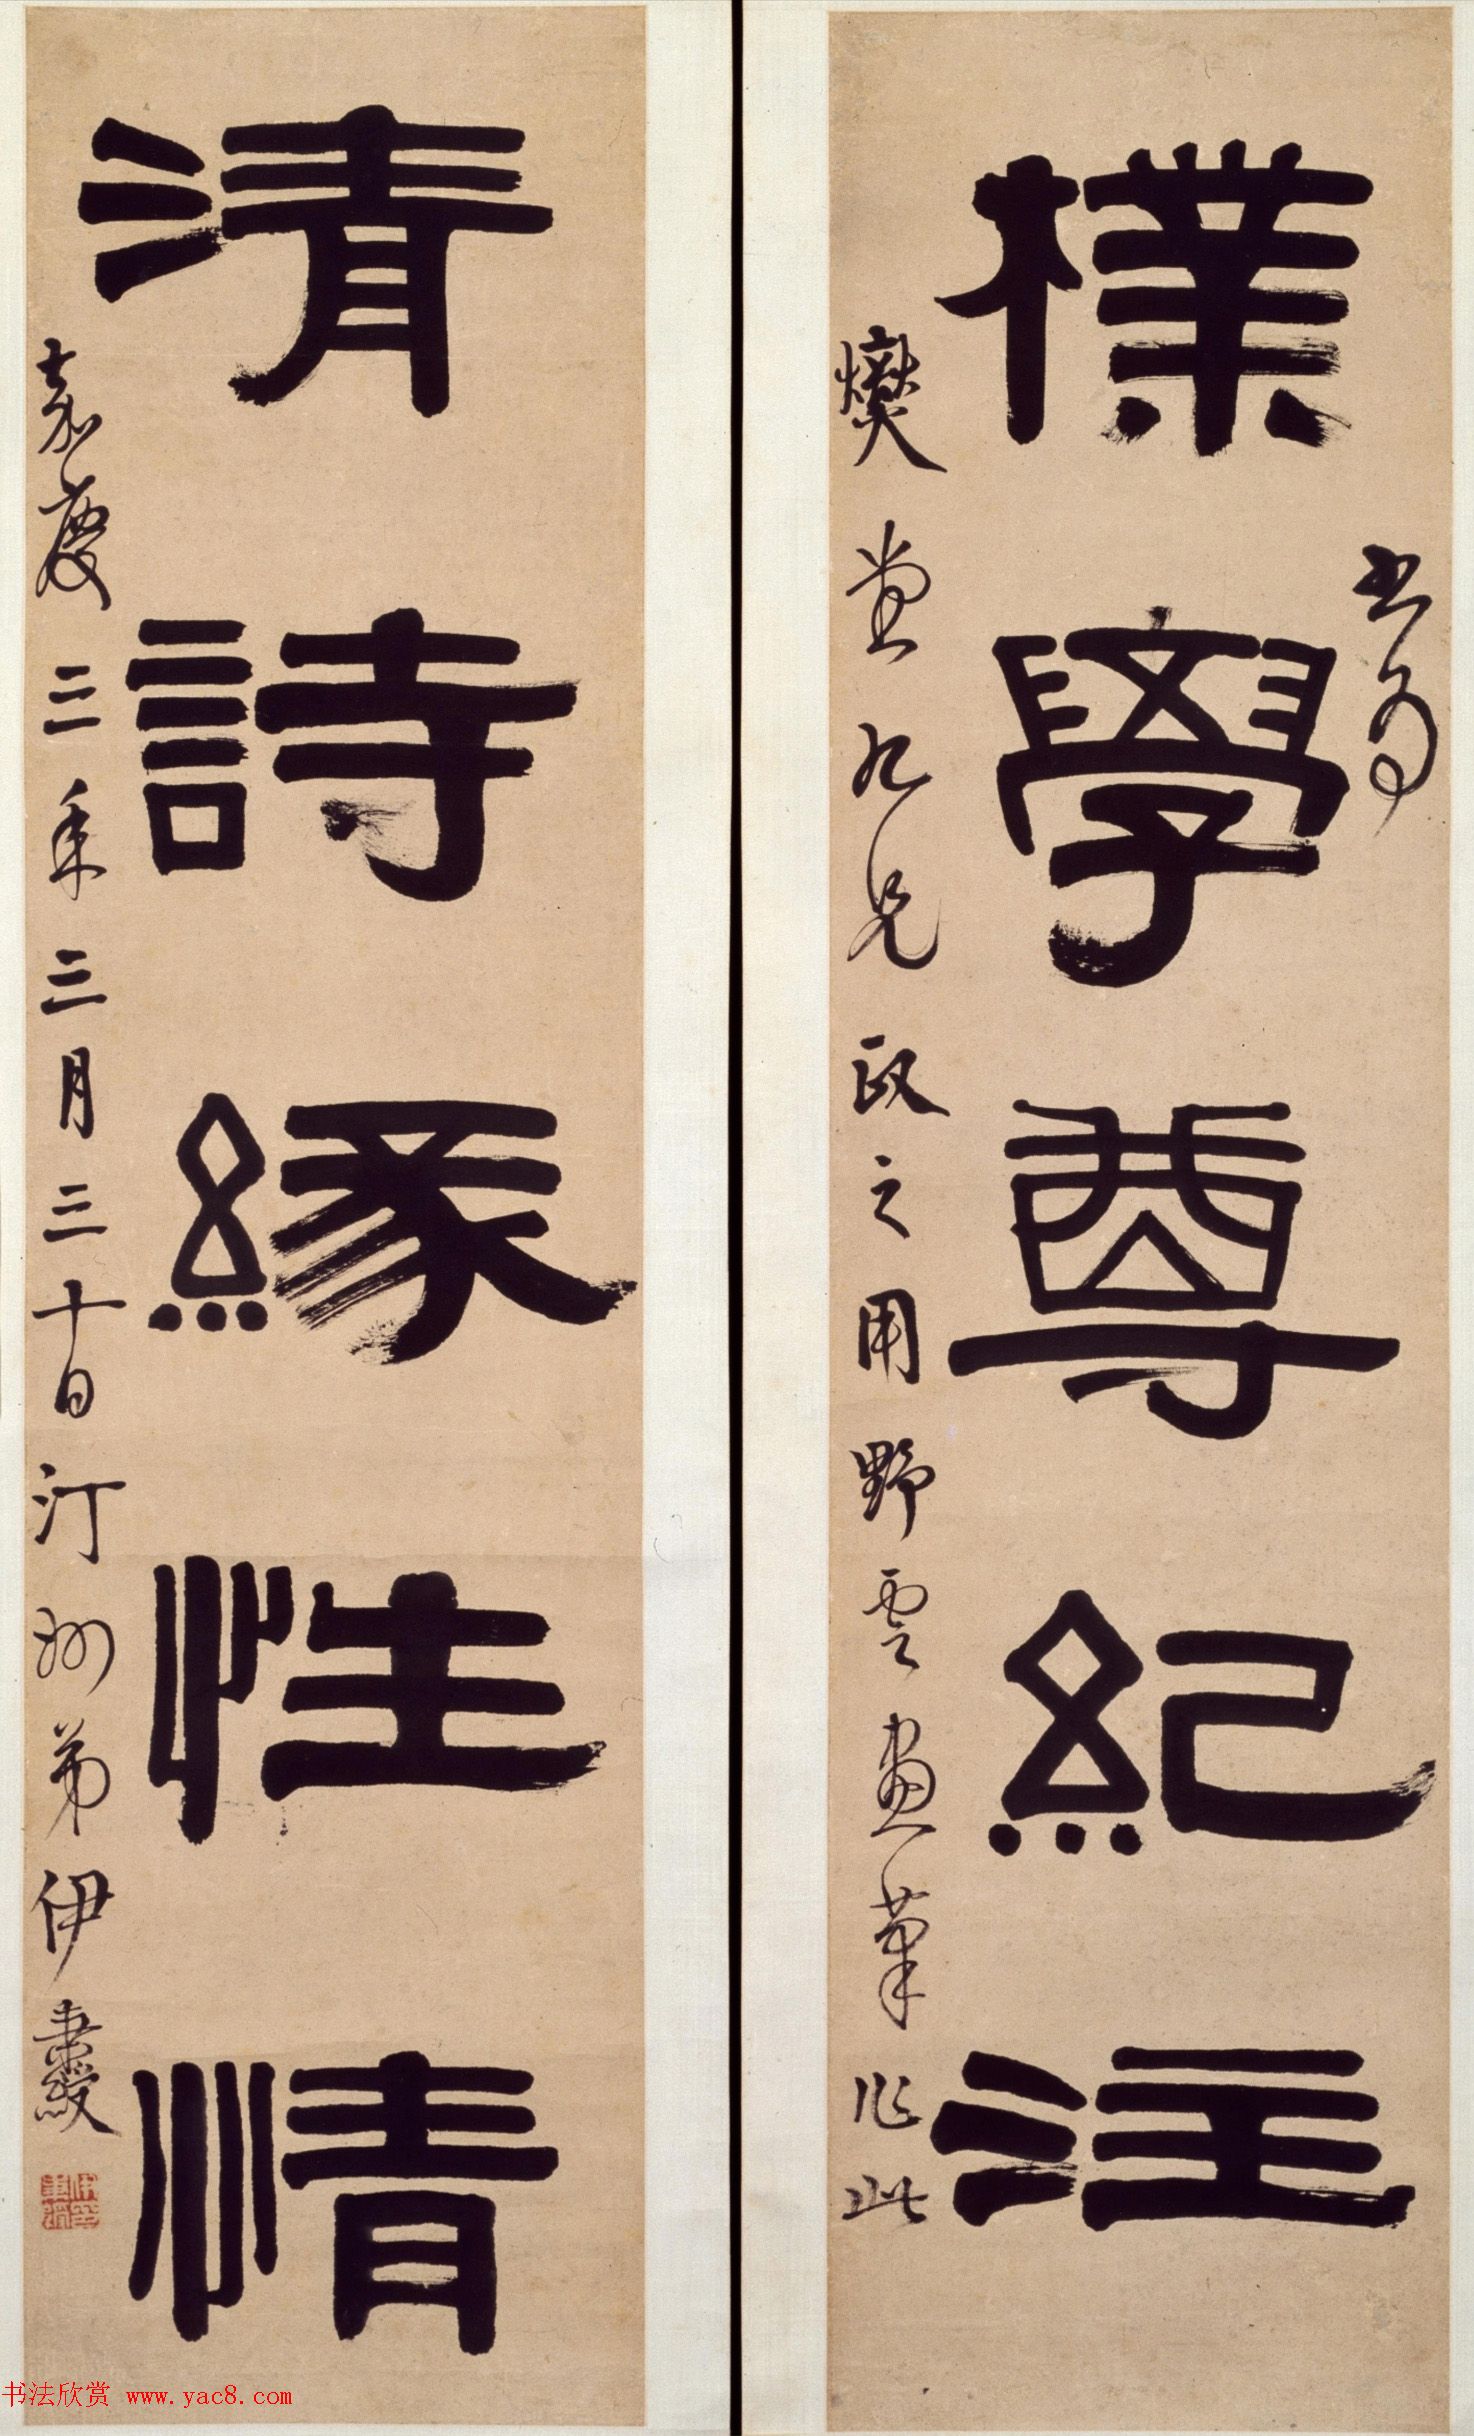 樸學尊紀注
書爲
燮堂九兄政之用野雲畫筆作此
清詩緣性情
嘉慶三年三月三十日汀州弟伊秉綬
书法欣赏 www.yac8.com